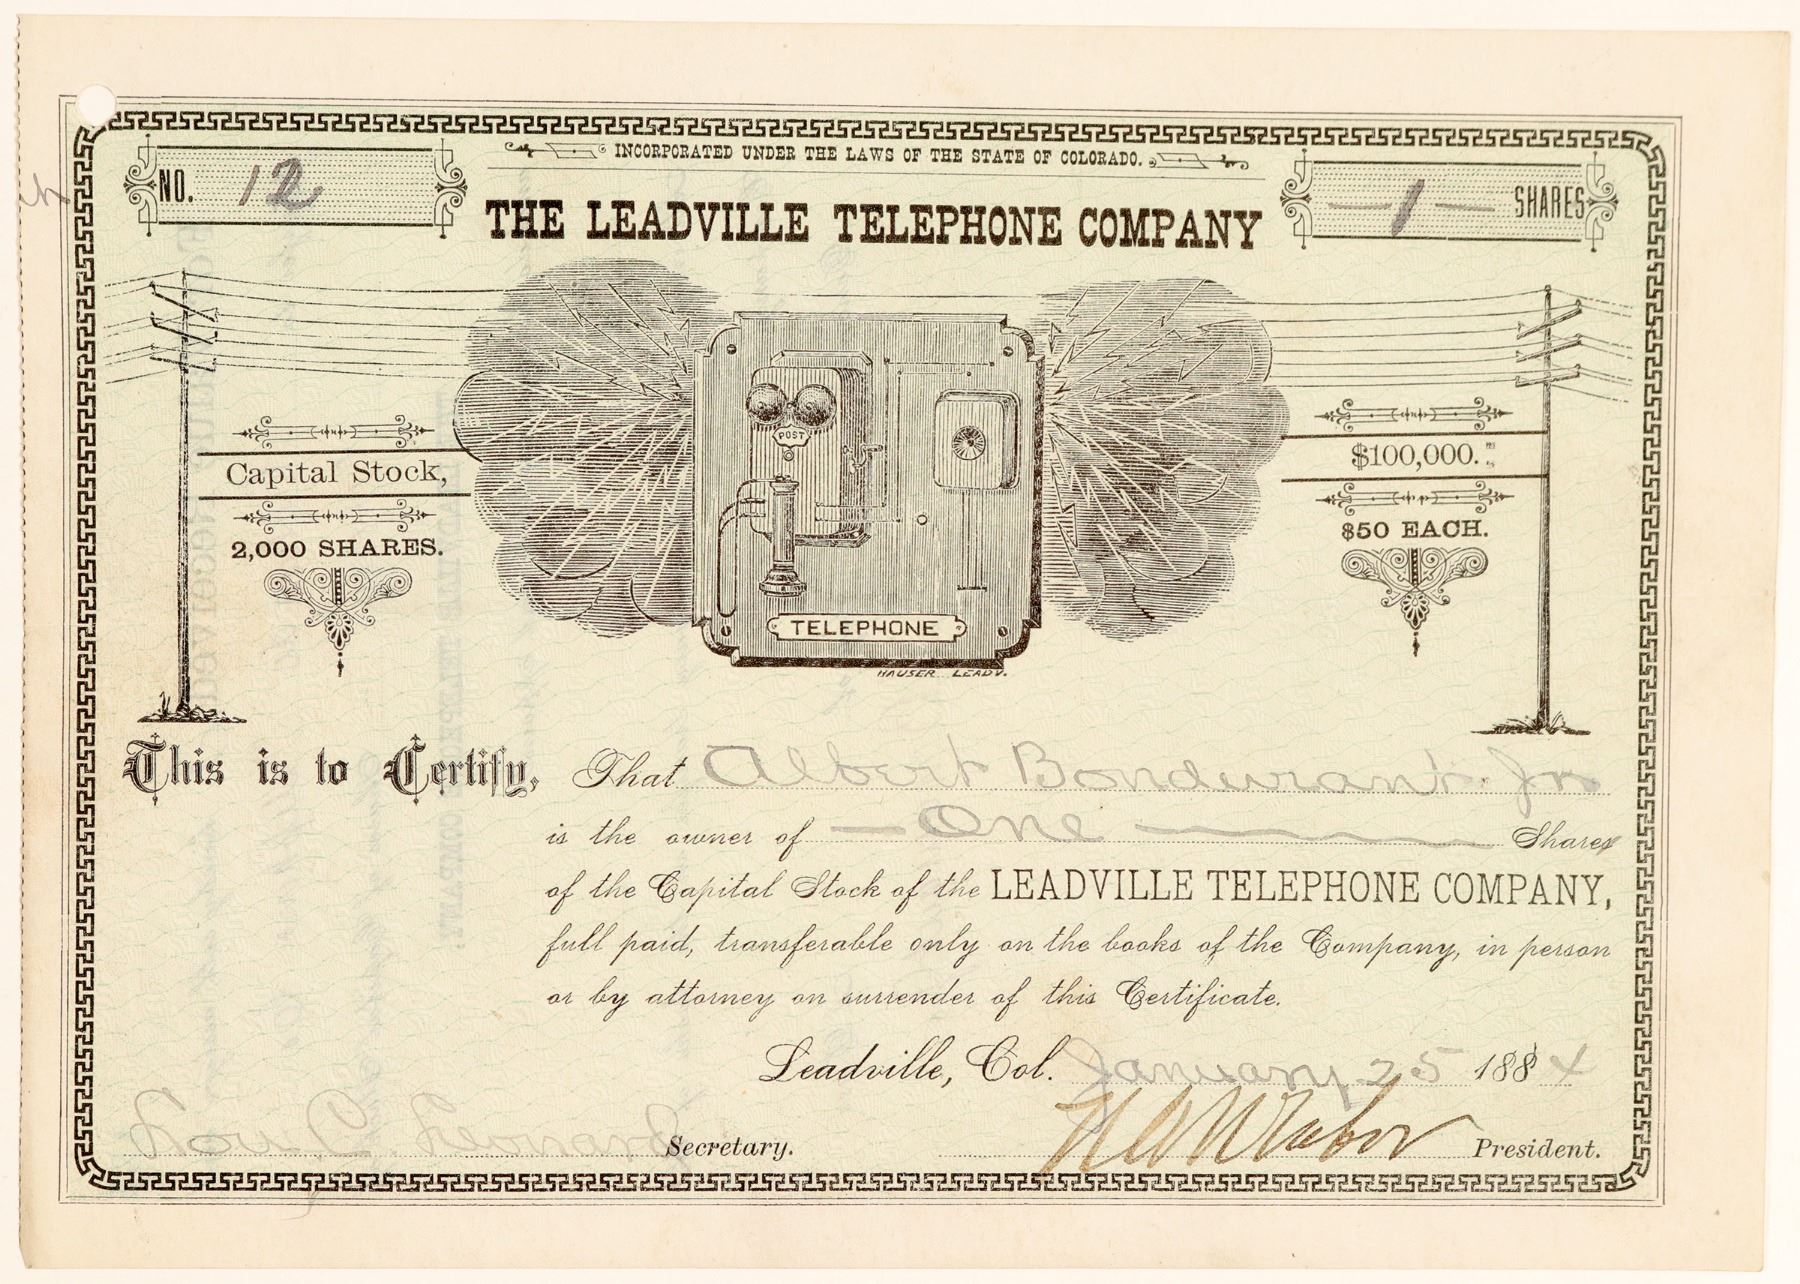 INCORPORATED UNDER THE LAWS OF THE STATE OF COLORADO.
NO. 12
— 1 — SHARES
THE LEADVILLE TELEPHONE COMPANY
POST
Capital Stock,
$100,000.
2,000 SHARES.
$50 EACH.
TELEPHONE
HAUSER LEADV.
This is to Certify, That Albert Bondurant Jr
is the owner of — One — Shares
of the Capital Stock of the LEADVILLE TELEPHONE COMPANY,
full paid, transferable only on the books of the Company, in person
or by attorney on surrender of this Certificate.
Leadville, Col. January 25 1884
Lou C Leonard Secretary.
President.